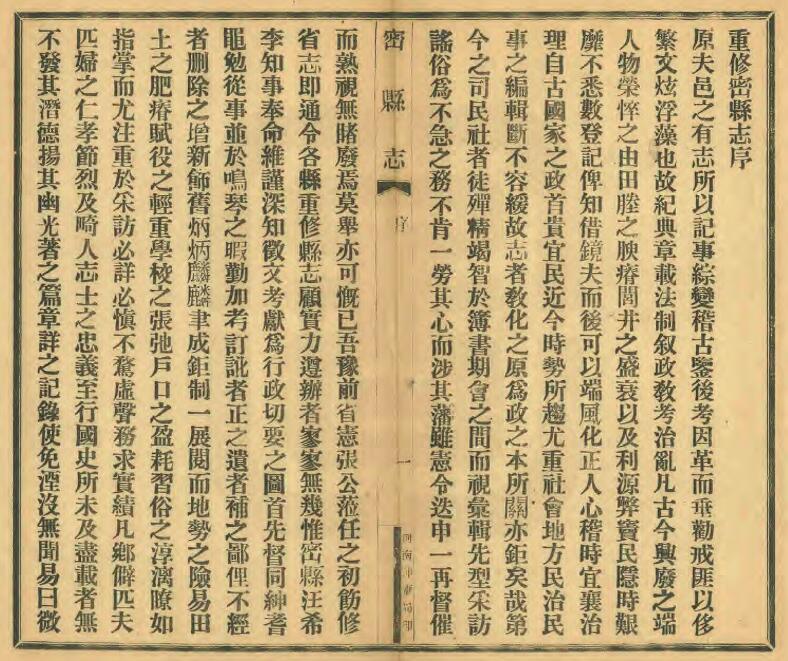 重修密縣志序
原夫邑之有志所以記事綜變稽古鑒後考因革而垂勸戒匪以侈
繁文炫浮藻也故紀典章載法制叙政教考治亂凡古今興廢之端
人物榮悴之由田塍之腴瘠閭井之盛衰以及利源弊竇民隱時艱
靡不悉數登記俾知借鏡夫而後可以端風化正人心稽時宜襄治
理自古國家之政首貴宜民近今時勢所趨尤重社會地方民治民
事之編輯斷不容緩故志者教化之原爲政之本所關亦鉅矣哉第
今之司民社者徒殫精竭智於簿書期會之間而視彙輯先型采訪
謠俗爲不急之務不肯一勞其心而涉其藩雖憲令迭申一再督催
密縣志
序
一
而熟視無睹廢焉莫舉亦可慨已吾豫前省憲張公蒞任之初飭修
省志即通令各縣重修縣志顧實力遵辦者寥寥無幾惟密縣汪希
李知事奉命維謹深知徵文考獻爲行政切要之圖首先督同紳耆
黽勉從事並於鳴琴之暇勤加考訂訛者正之遺者補之鄙俚不經
者删除之增新飾舊炳炳麟麟聿成鉅制一展閱而地勢之險易田
土之肥瘠賦役之輕重學校之張弛戶口之盈耗習俗之淳漓瞭如
指掌而尤注重於采訪必詳必慎不騖虛聲務求實績凡鄉僻匹夫
匹婦之仁孝節烈及畸人志士之忠義至行國史所未及盡載者無
不發其潛德揚其幽光著之篇章詳之記錄使免湮沒無聞易曰微